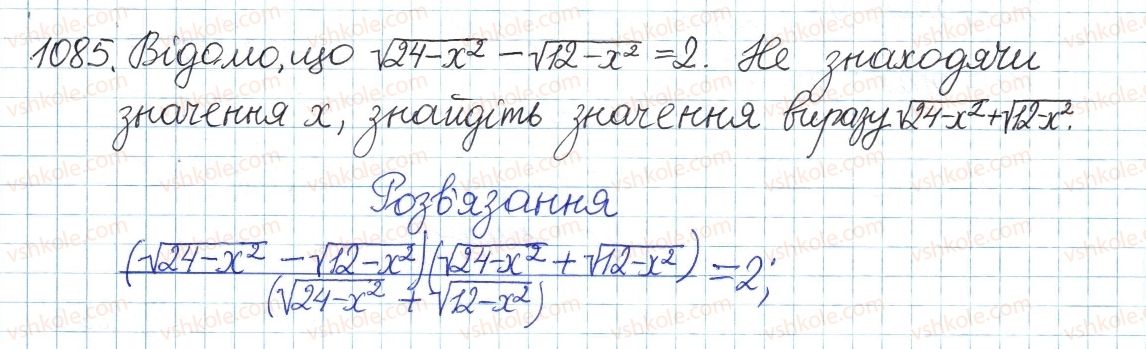 1085. Відомо, що √(24-x²) - √(12-x²) = 2. Не знаходячи
значення x, знайдіть значення виразу √(24-x²) + √(12-x²).
Розв'язання
(√(24-x²) - √(12-x²))(√(24-x²) + √(12-x²)) / (√(24-x²) + √(12-x²)) = 2;